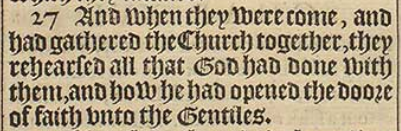 27 And when they were come, and
had gathered the Church together, they
rehearsed all that God had done with
them, and how he had opened the doore
of faith vnto the Gentiles.